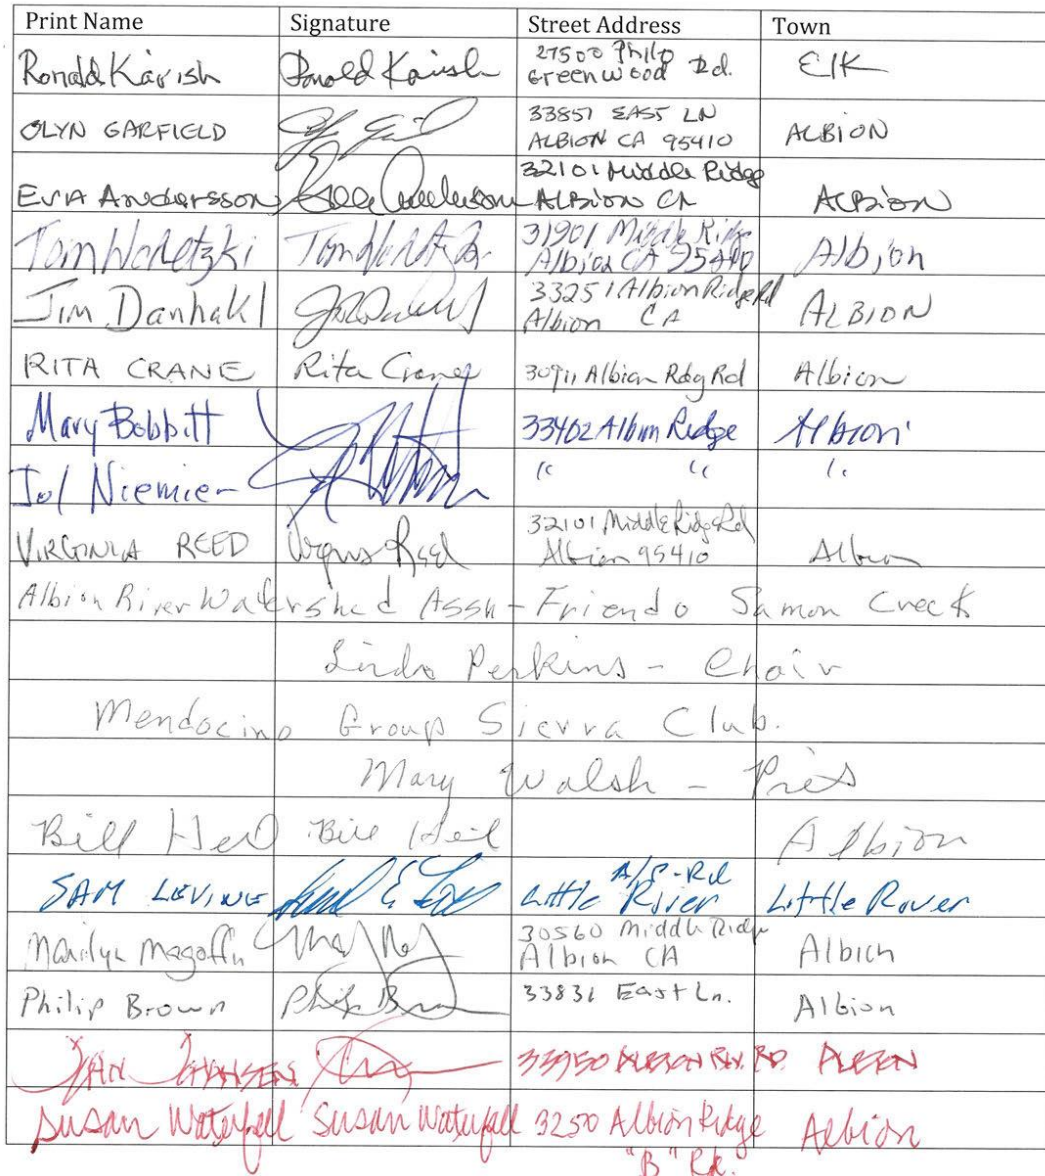 Print Name Signature Street Address Town
Ronald Karish Ronald Karish 27500 Philo Greenwood Rd. Elk
OLYN GARFIELD 33857 EAST LN ALBION CA 95410 ALBION
EVA Andersson 32101 Middle Ridge ALBION CA ALBION
Tom Wodetzki Tom Wodetzki 31901 Middle Ridge Albion CA 95410 Albion
Jim Danhakl 33251 Albion Ridge Rd Albion CA ALBION
RITA CRANE Rita Crane 30911 Albion Rdg Rd Albion
Mary Bobbitt 33402 Albion Ridge Albion
Niemier " " "
VIRGINIA REED Reed 32101 Middle Ridge Rd Albion 95410 Albion
Albion River Watershed Assn - Friends Samon Creek
Linda Perkins - Chair
Mendocino Group Sierra Club.
Mary Walsh - Pres
Bill Heil Bill Heil Albion
SAM LEVINE A/P-Rd Little River Little River
Marilyn Magoffin 30560 Middle Ridge Albion CA Albion
Philip Brown Philip 33831 East Ln. Albion
JAN ALBION
Susan Waterfall Susan Waterfall 3250 Albion Ridge "B" Rd. Albion